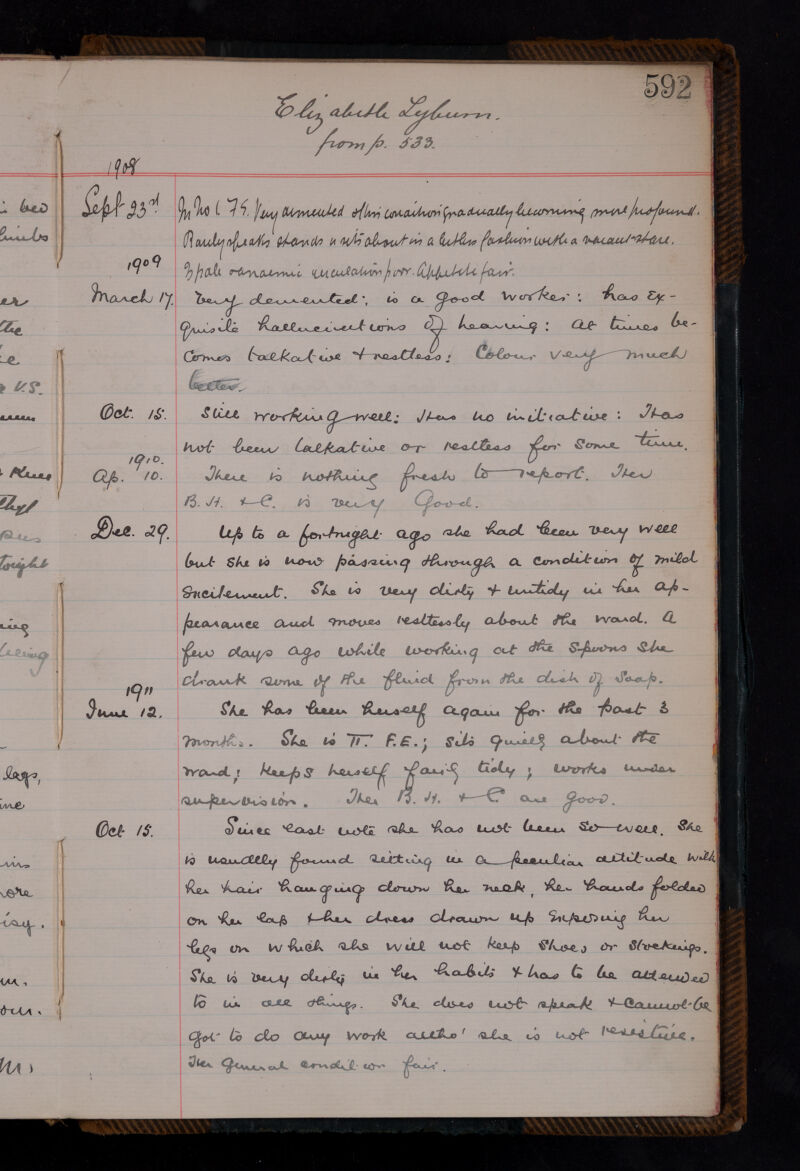 592
Elizabeth Lyburn.
from p. 533.
1908
Sept 23rd In No (7G. Very demented & this condition gradually becoming more profound.
Rarely speaks stands & sits about in a listless fashion with a vacant stare.
1909
Is pale & anaemic circulation poor. Appetite fair.
March 17. Very demented; is a good worker: has ex-
quisite hallucinations of hearing: at times be-
comes talkative & restless: Colour very much
better.
Oct. 15. Still working well: Has no initiative: Has
not been talkative or restless for some time.
1910.
Ap. 10. There is nothing fresh to report. Her
B. H. & C. is very Good.
Dec. 29. Up to a fortnight ago she had been very well
but she is now passing through a condition of mild
excitement. She is very dirty & untidy in her ap-
pearance and moves restlessly about the ward. A
few days ago while working at the spoons she
drank some of the fluid from the dish of Soap.
1911
June 12. She has been herself again for the past 3
months. She is II. F.E.; sits quietly about the
ward; keeps herself fairly tidy; works under
supervision. Her B. H. & C are good.
Oct 15. Since last note she has not been so well. She
is usually found sitting in a peculiar attitude with
her hair hanging down her neck, her hands folded
on her lap & her dress drawn up exposing her
legs on which she will not keep shoes or stockings.
She is very dirty in her habits & has to be attended
to in all things. She does not speak & cannot be
got to do any work altho' she is not resistive.
Her General condition fair.